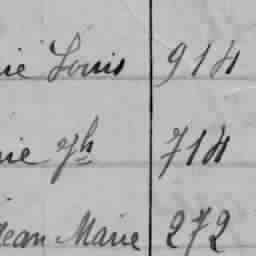 Louis 914
Jh 714
Jean Marie 272